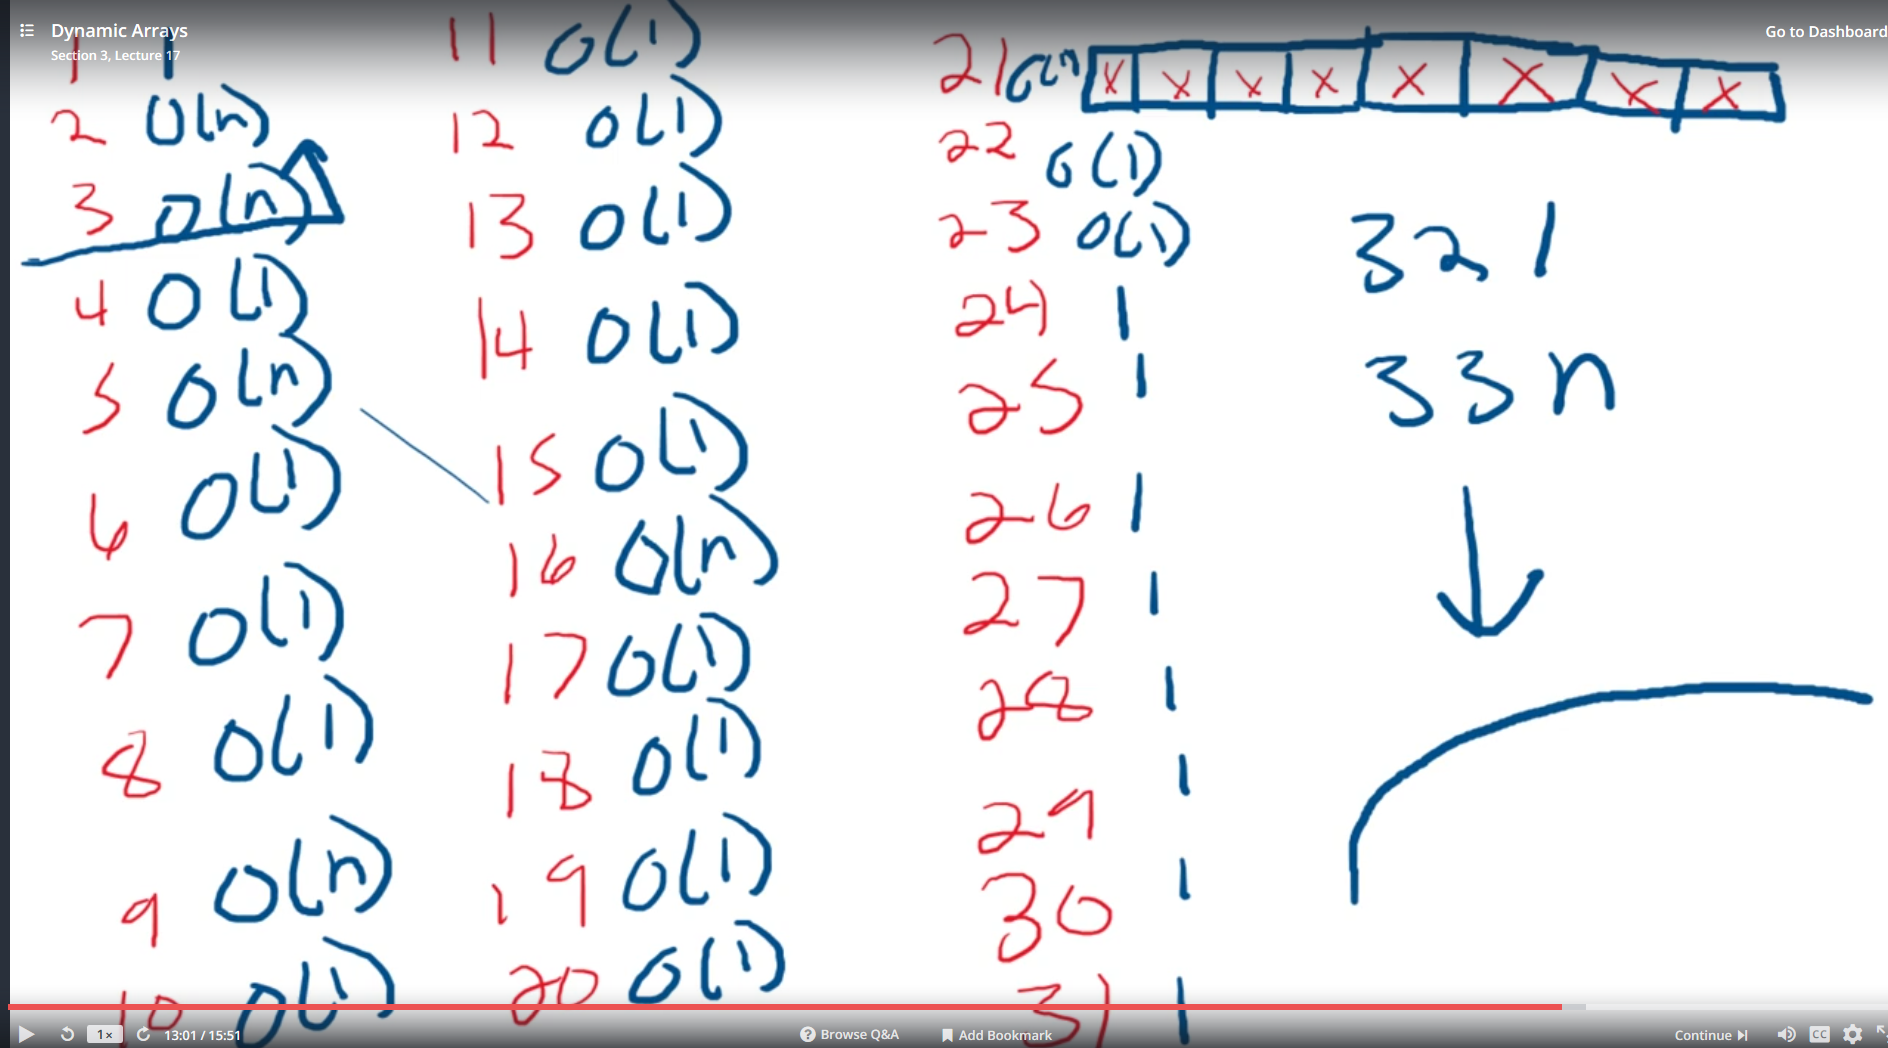 Dynamic Arrays
Go to Dashboard
Section 3, Lecture 17
1 1
2 O(n)
3 O(n)
4 O(1)
5 O(n)
6 O(1)
7 O(1)
8 O(1)
9 O(n)
10 O(1)
11 O(1)
12 O(1)
13 O(1)
14 O(1)
15 O(1)
16 O(n)
17 O(1)
18 O(1)
19 O(1)
20 O(1)
21 O(n) X X X X X X X X
22 O(1)
23 O(1)
24 1
25 1
26 1
27 1
28 1
29 1
30 1
31 1
32 1
33 n
1x 13:01 / 15:51 ? Browse Q&A Add Bookmark Continue CC